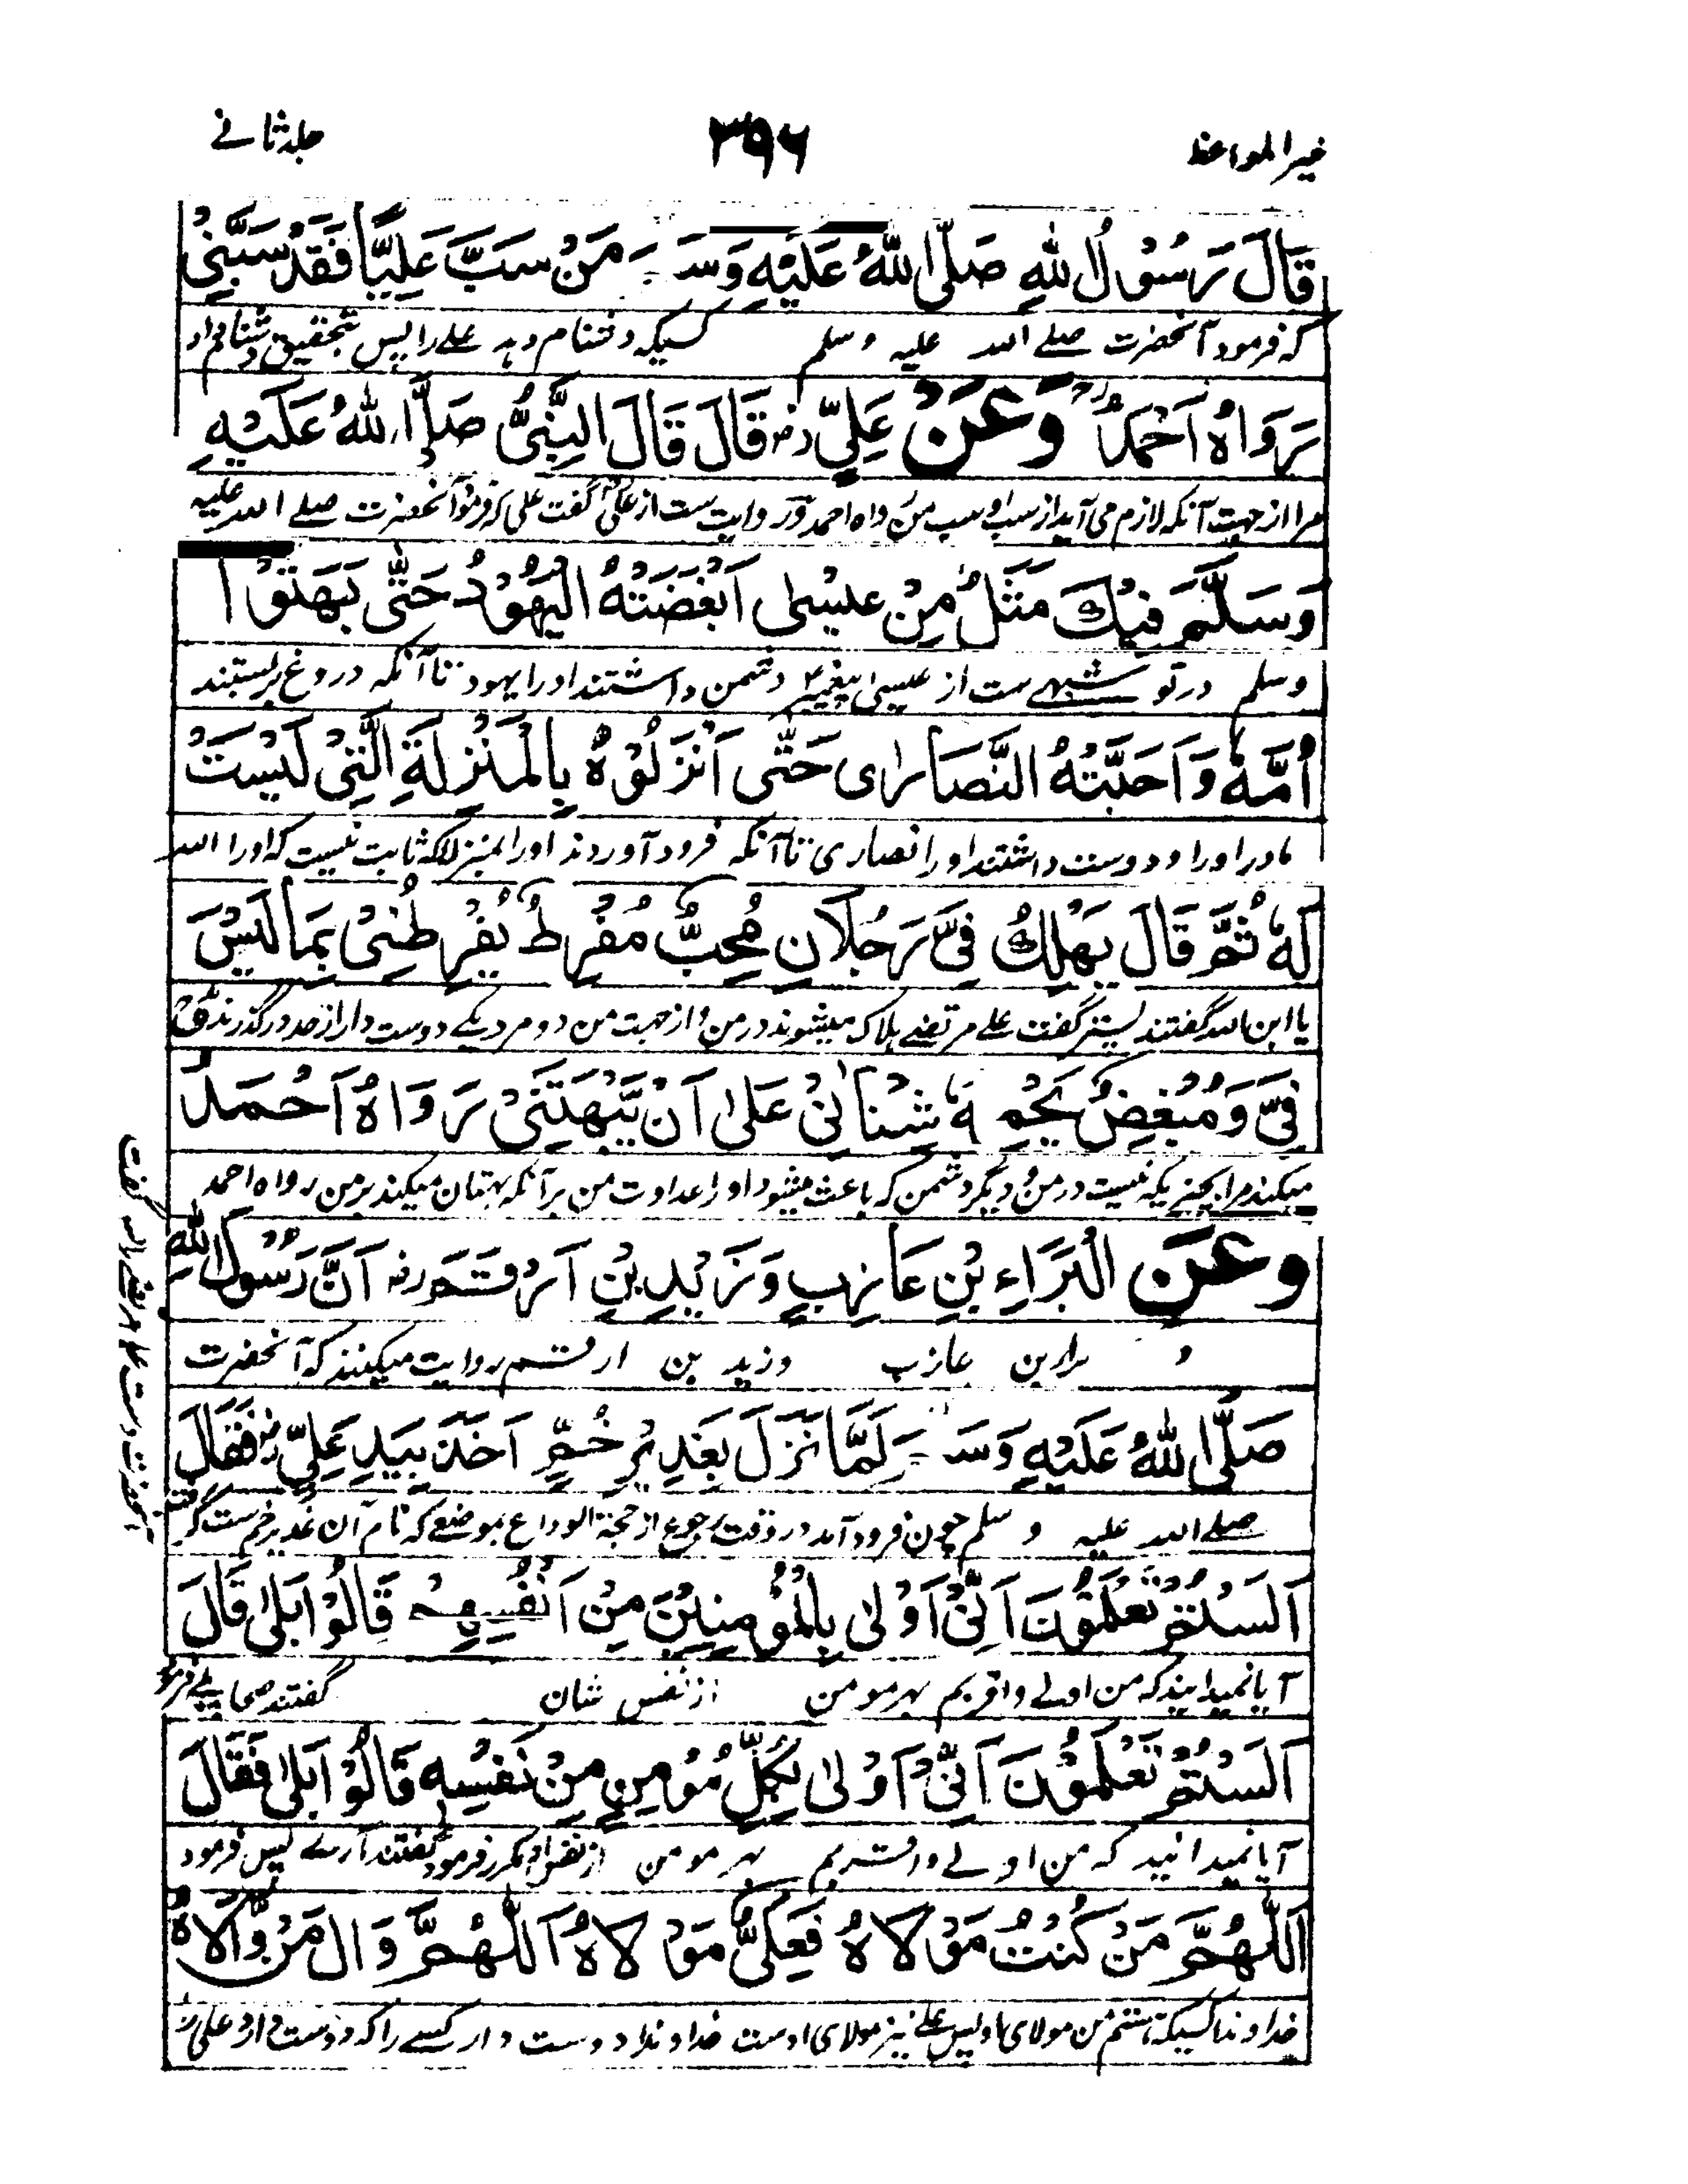 خیرالمواعظ ۳۹۶ جلد ثانے
قَالَ رَسُوْلُ اللّٰهِ صَلَّى اللّٰهُ عَلَيْهِ وَسَـ مَنْ سَبَّ عَلِيًّا فَقَدْ سَبَّنِيْ
که فرمود آنحضرت صلے الله علیه وسلم کسیکه دشنام دہد علے را پس بتحقیق دشنام داد
رَوَاهُ اَحْمَدُ وَعَنْ عَلِيٍّ رض قَالَ قَالَ النَّبِيُّ صَلَّى اللّٰهُ عَلَيْهِ
مرا از جہت آنکه لازم می آید از سب او سب من رواه احمد و روایت ست از علی گفت علی که فرمود آنحضرت صلے الله علیه
وَسَلَّمَ فِيْكَ مَثَلٌ مِنْ عِيسٰى اَبْغَضَتْهُ الْيَهُوْدُ حَتّٰى بَهَتُوْا
وسلم در تو شبہے ست از عیسیٰ پیغمبر دشمن داشتند او را یهود تا آنکه دروغ بربستند
اُمَّهٗ وَاَحَبَّتْهُ النَّصَارٰى حَتّٰى اَنْزَلُوْهُ بِالْمَنْزِلَةِ الَّتِيْ لَيْسَتْ
مادر او را و دوست داشتند او را نصاری تا آنکه فرود آوردند او را بمنزلتی که ثابت نیست که او را الله
لَهٗ ثُمَّ قَالَ يَهْلِكُ فِيَّ رَجُلَانِ مُحِبٌّ مُفْرِطٌ يُفْرِطُنِيْ بِمَا لَيْسَ
یا ابن الله گفتند پستر گفت علے مرتضے ہلاک میشوند در من و از جہت من دو مرد یکے دوست دار از حد درگذرنده
فِيَّ وَمُبْغِضٌ يَحْمِلُهٗ شَنَاٰنِيْ عَلٰى اَنْ يَّبْهَتَنِيْ رَوَاهُ اَحْمَدُ
میکند مرا بچیزیکه نیست در من و دیگر دشمن که باعث میشود او را عداوت من بر آنکه بہتان میکند بر من رواه احمد
وعَنِ الْبَرَاءِ بْنِ عَازِبٍ وَزَيْدِ بْنِ اَرْقَمَ رض اَنَّ رَسُوْلَ اللّٰهِ
و براء بن عازب و زید بن ارقم روایت میکنند که آنحضرت
صَلَّى اللّٰهُ عَلَيْهِ وَسَـ لَمَّا نَزَلَ بِغَدِيْرِ خُمٍّ اَخَذَ بِيَدِ عَلِيٍّ رض فَقَالَ
صلے الله علیه وسلم چون فرود آمد در وقت رجوع از حجة الوداع بموضعے که نام آن غدیر خم ست گرفت
اَلَسْتُمْ تَعْلَمُوْنَ اَنِّيْ اَوْلٰى بِالْمُؤْمِنِيْنَ مِنْ اَنْفُسِهِمْ قَالُوْا بَلٰى قَالَ
آیا نمیدانید که من اولے و اقربم بہر مومن از نفس شان گفتند صحابہ بلے فرمود
اَلَسْتُمْ تَعْلَمُوْنَ اَنِّيْ اَوْلٰى بِكُلِّ مُؤْمِنٍ مِنْ نَفْسِهٖ قَالُوْا بَلٰى فَقَالَ
آیا نمیدانید که من اولے و اقربم بہر مومن از نفس او مکرر فرمود گفتند آرے پس فرمود
اَللّٰهُمَّ مَنْ كُنْتُ مَوْلَاهُ فَعَلِيٌّ مَوْلَاهُ اَللّٰهُمَّ وَالِ مَنْ وَّالَاهُ
خداوندا کسیکه ہستم من مولای او پس علے نیز مولای اوست خداوندا دوست دار کسے را که دوست دارد علی را